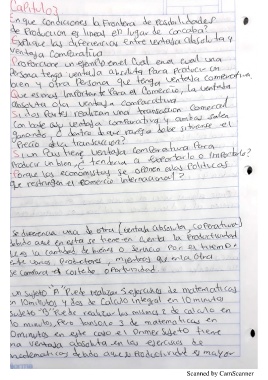 Capitulo 3
En que condiciones la Frontera de Posibilidades
de Produccion es lineal en lugar de concava?
Explique las diferencias Entre ventaja absoluta y
ventaja Comparativa
Proporcione un ejemplo en el cual en el cual una
Persona tenga ventaja absoluta Para producir un
bien y otra Persona que tenga ventaja comparativa
Que es mas importante Para el Comercio, la ventaja
absoluta o la ventaja comparativa
Si dos Partes realizan una transaccion comercial
Con base en ventaja comparativa y ambas salen
ganando, dentro de que rango debe situarse el
Precio de la transaccion?
Si un Pais tiene ventaja comparativa Para
Producir un bien, tendera a exportarlo o importarlo?
Porque los economistas se oponen a las Politicas
que restringen el comercio internacional?
Se diferencia una de otra (ventaja absoluta, comparativa)
debido a que en esta se tiene en cuenta la Productividad
la cantidad de bienes o servicio Por el tiempo
Productora, mientras que en la otra
se compara el costo de oportunidad
un sujeto "A" Puede realizar 5 ejercicios de matematicas
en 10 minutos y 2 de Calculo integral en 10 minutos
Sujeto "B" Puede realizar los mismos 2 de calculo en
10 minutos, Pero 3 de matematicas en
10 minutos en este caso el Primer Sujeto tiene
una ventaja absoluta en los ejercicios de
matematicas debido a que la Productividad es mayor
Scanned by CamScanner